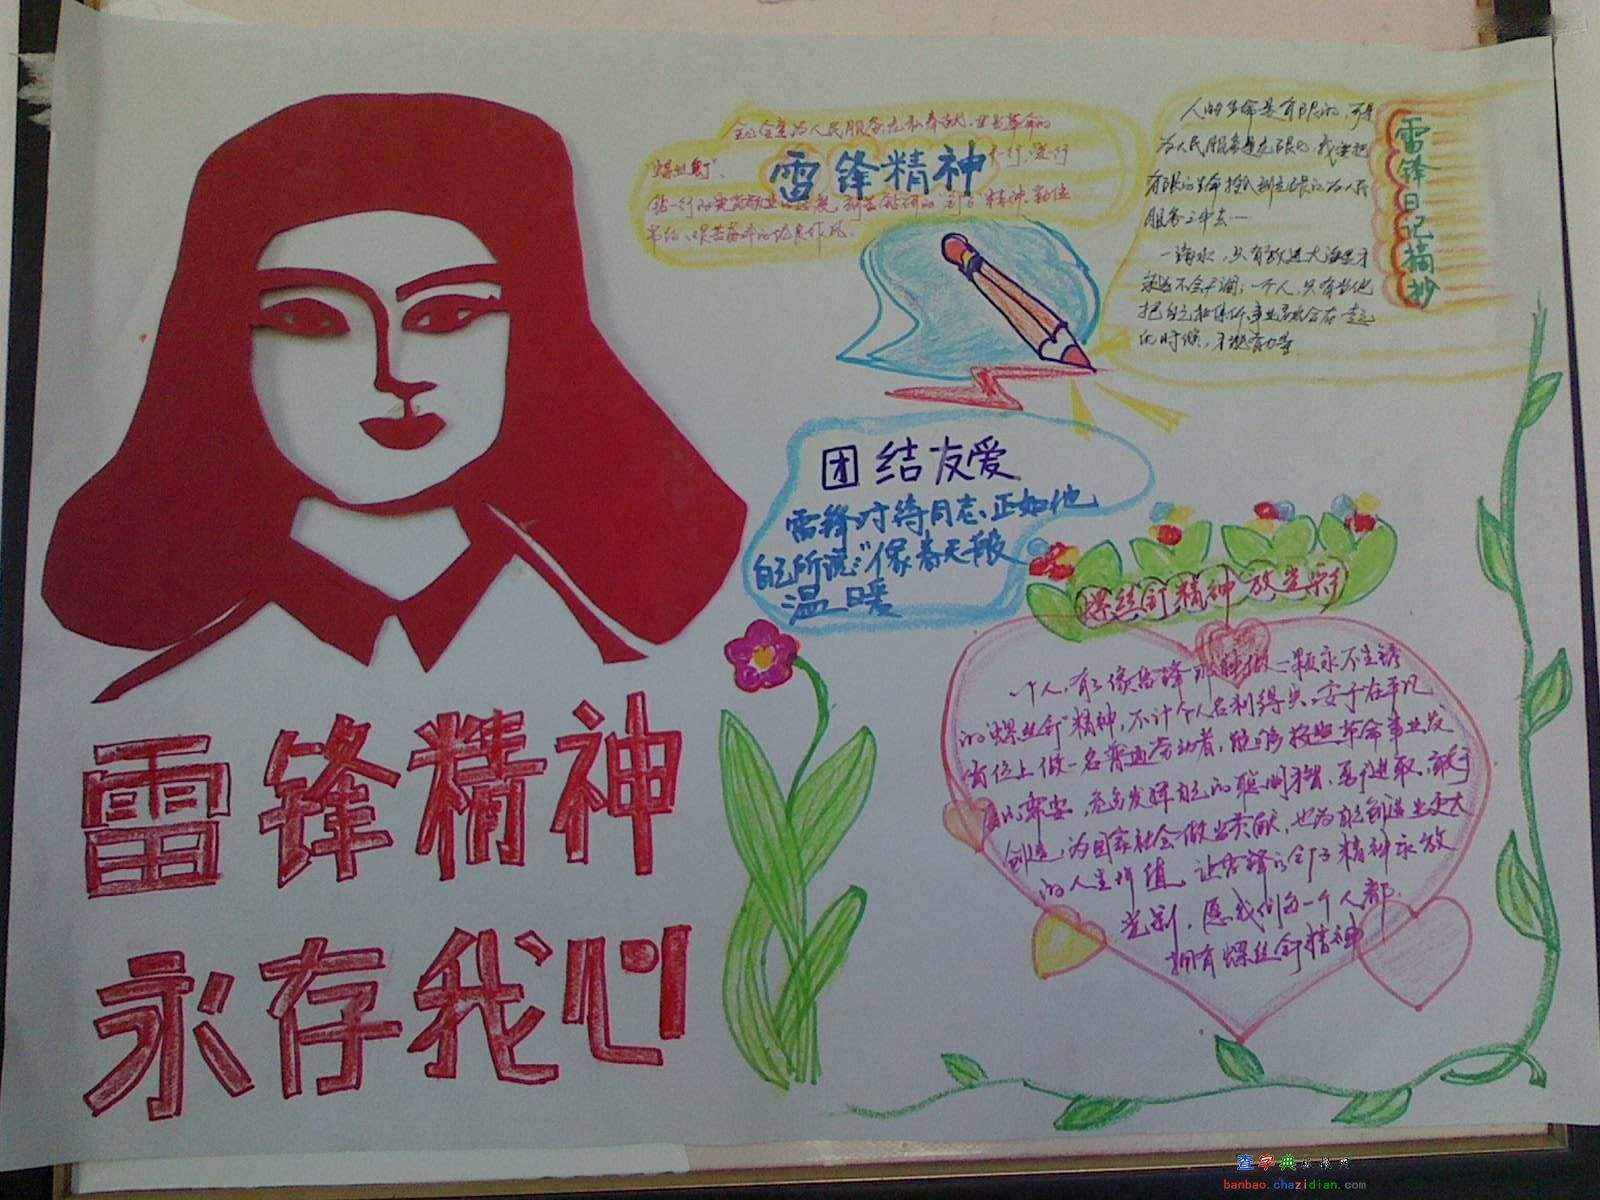 雷锋精神
永存我心
全心全意为人民服务,无私奉献,
"螺丝钉"
雷锋精神
团结友爱
雷锋对待同志,正如他
自己所说:"像春天般
温暖
雷锋日记摘抄
人的生命是有限的,可是
为人民服务是无限的,我要把
有限的生命投入到无限的为人民
服务之中去
一滴水,只有放进大海里才
永远不会干涸,一个人,只有当他
把自己和集体事业融合在一起
的时候,才
螺丝钉精神放光彩
一个人,有了像雷锋那种做一颗永不生锈
的"螺丝钉"精神,不计个人名利得失,安于在平凡
岗位上做一名普通劳动者,
发挥自己的聪明才智,
创造,为国家社会做出贡献,也为自己创造出更大
的人生价值,让雷锋的钉子精神永放
光彩,愿我们每一个人都
拥有螺丝钉精神
查字典
banbao.chazidian.com